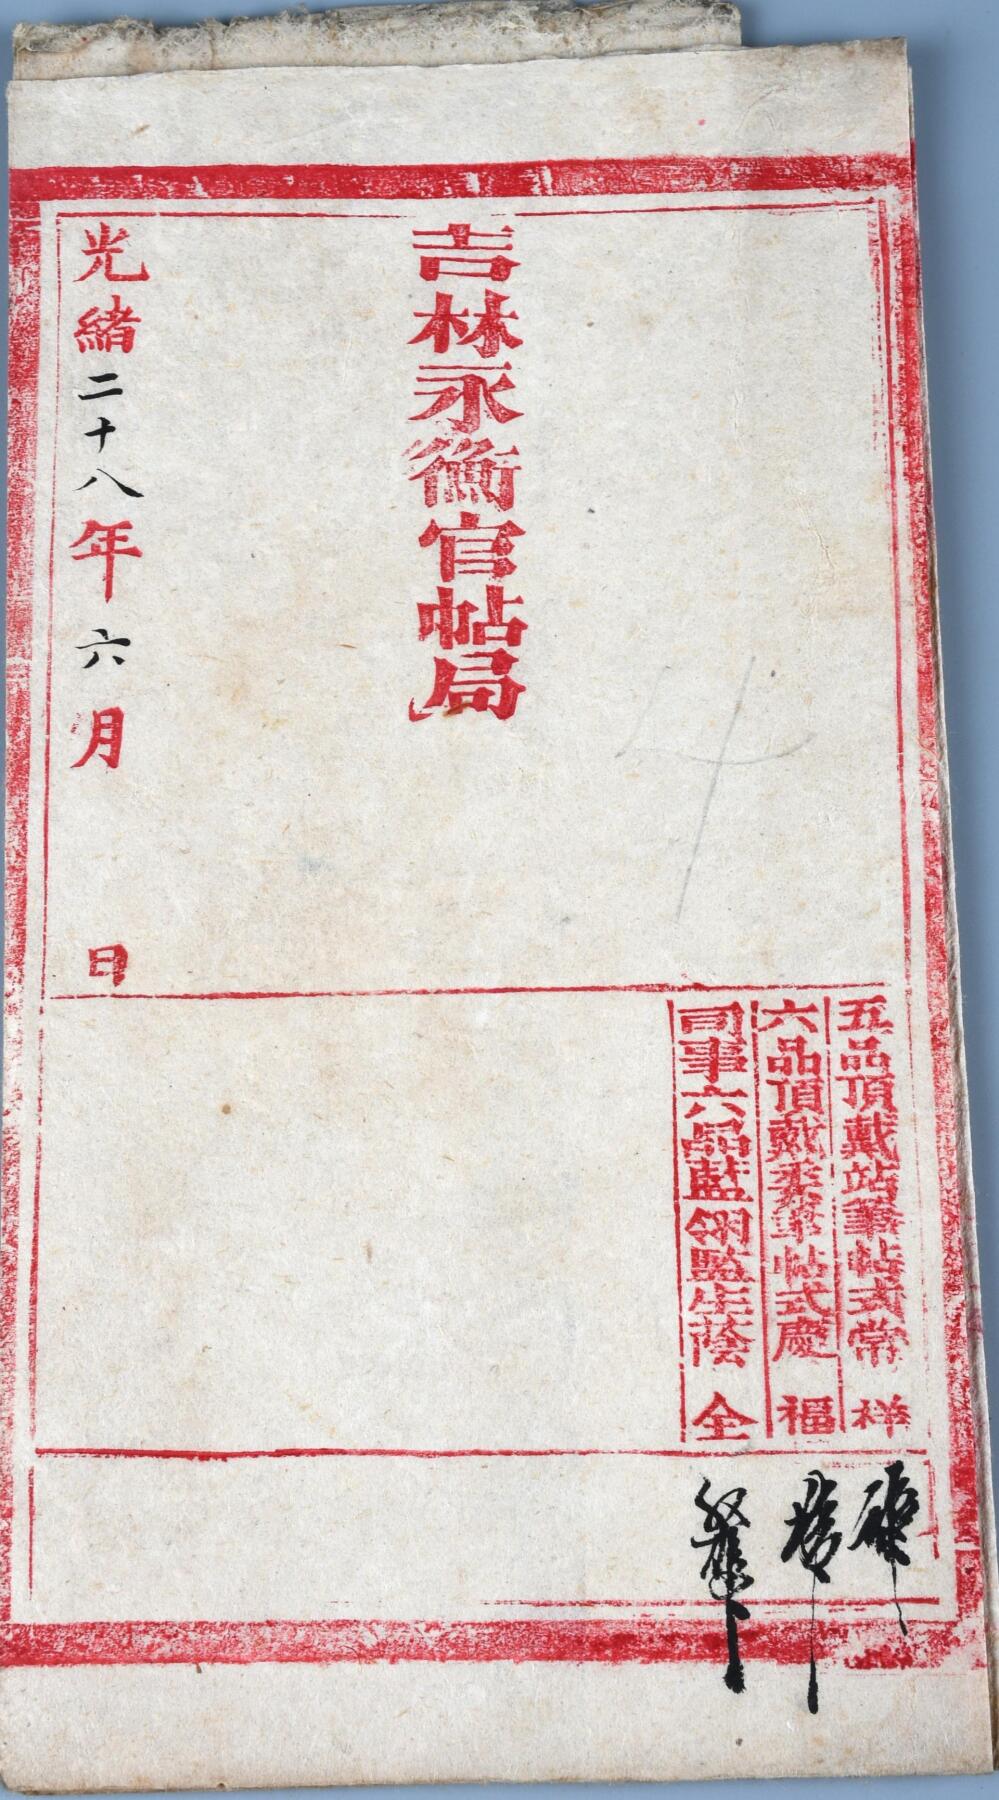 五品頂戴站筆帖式常祥
六品頂戴委筆帖式慶福
司事六品藍翎監生蔭全
吉林永衡官帖局
光緒二十八年六月 日